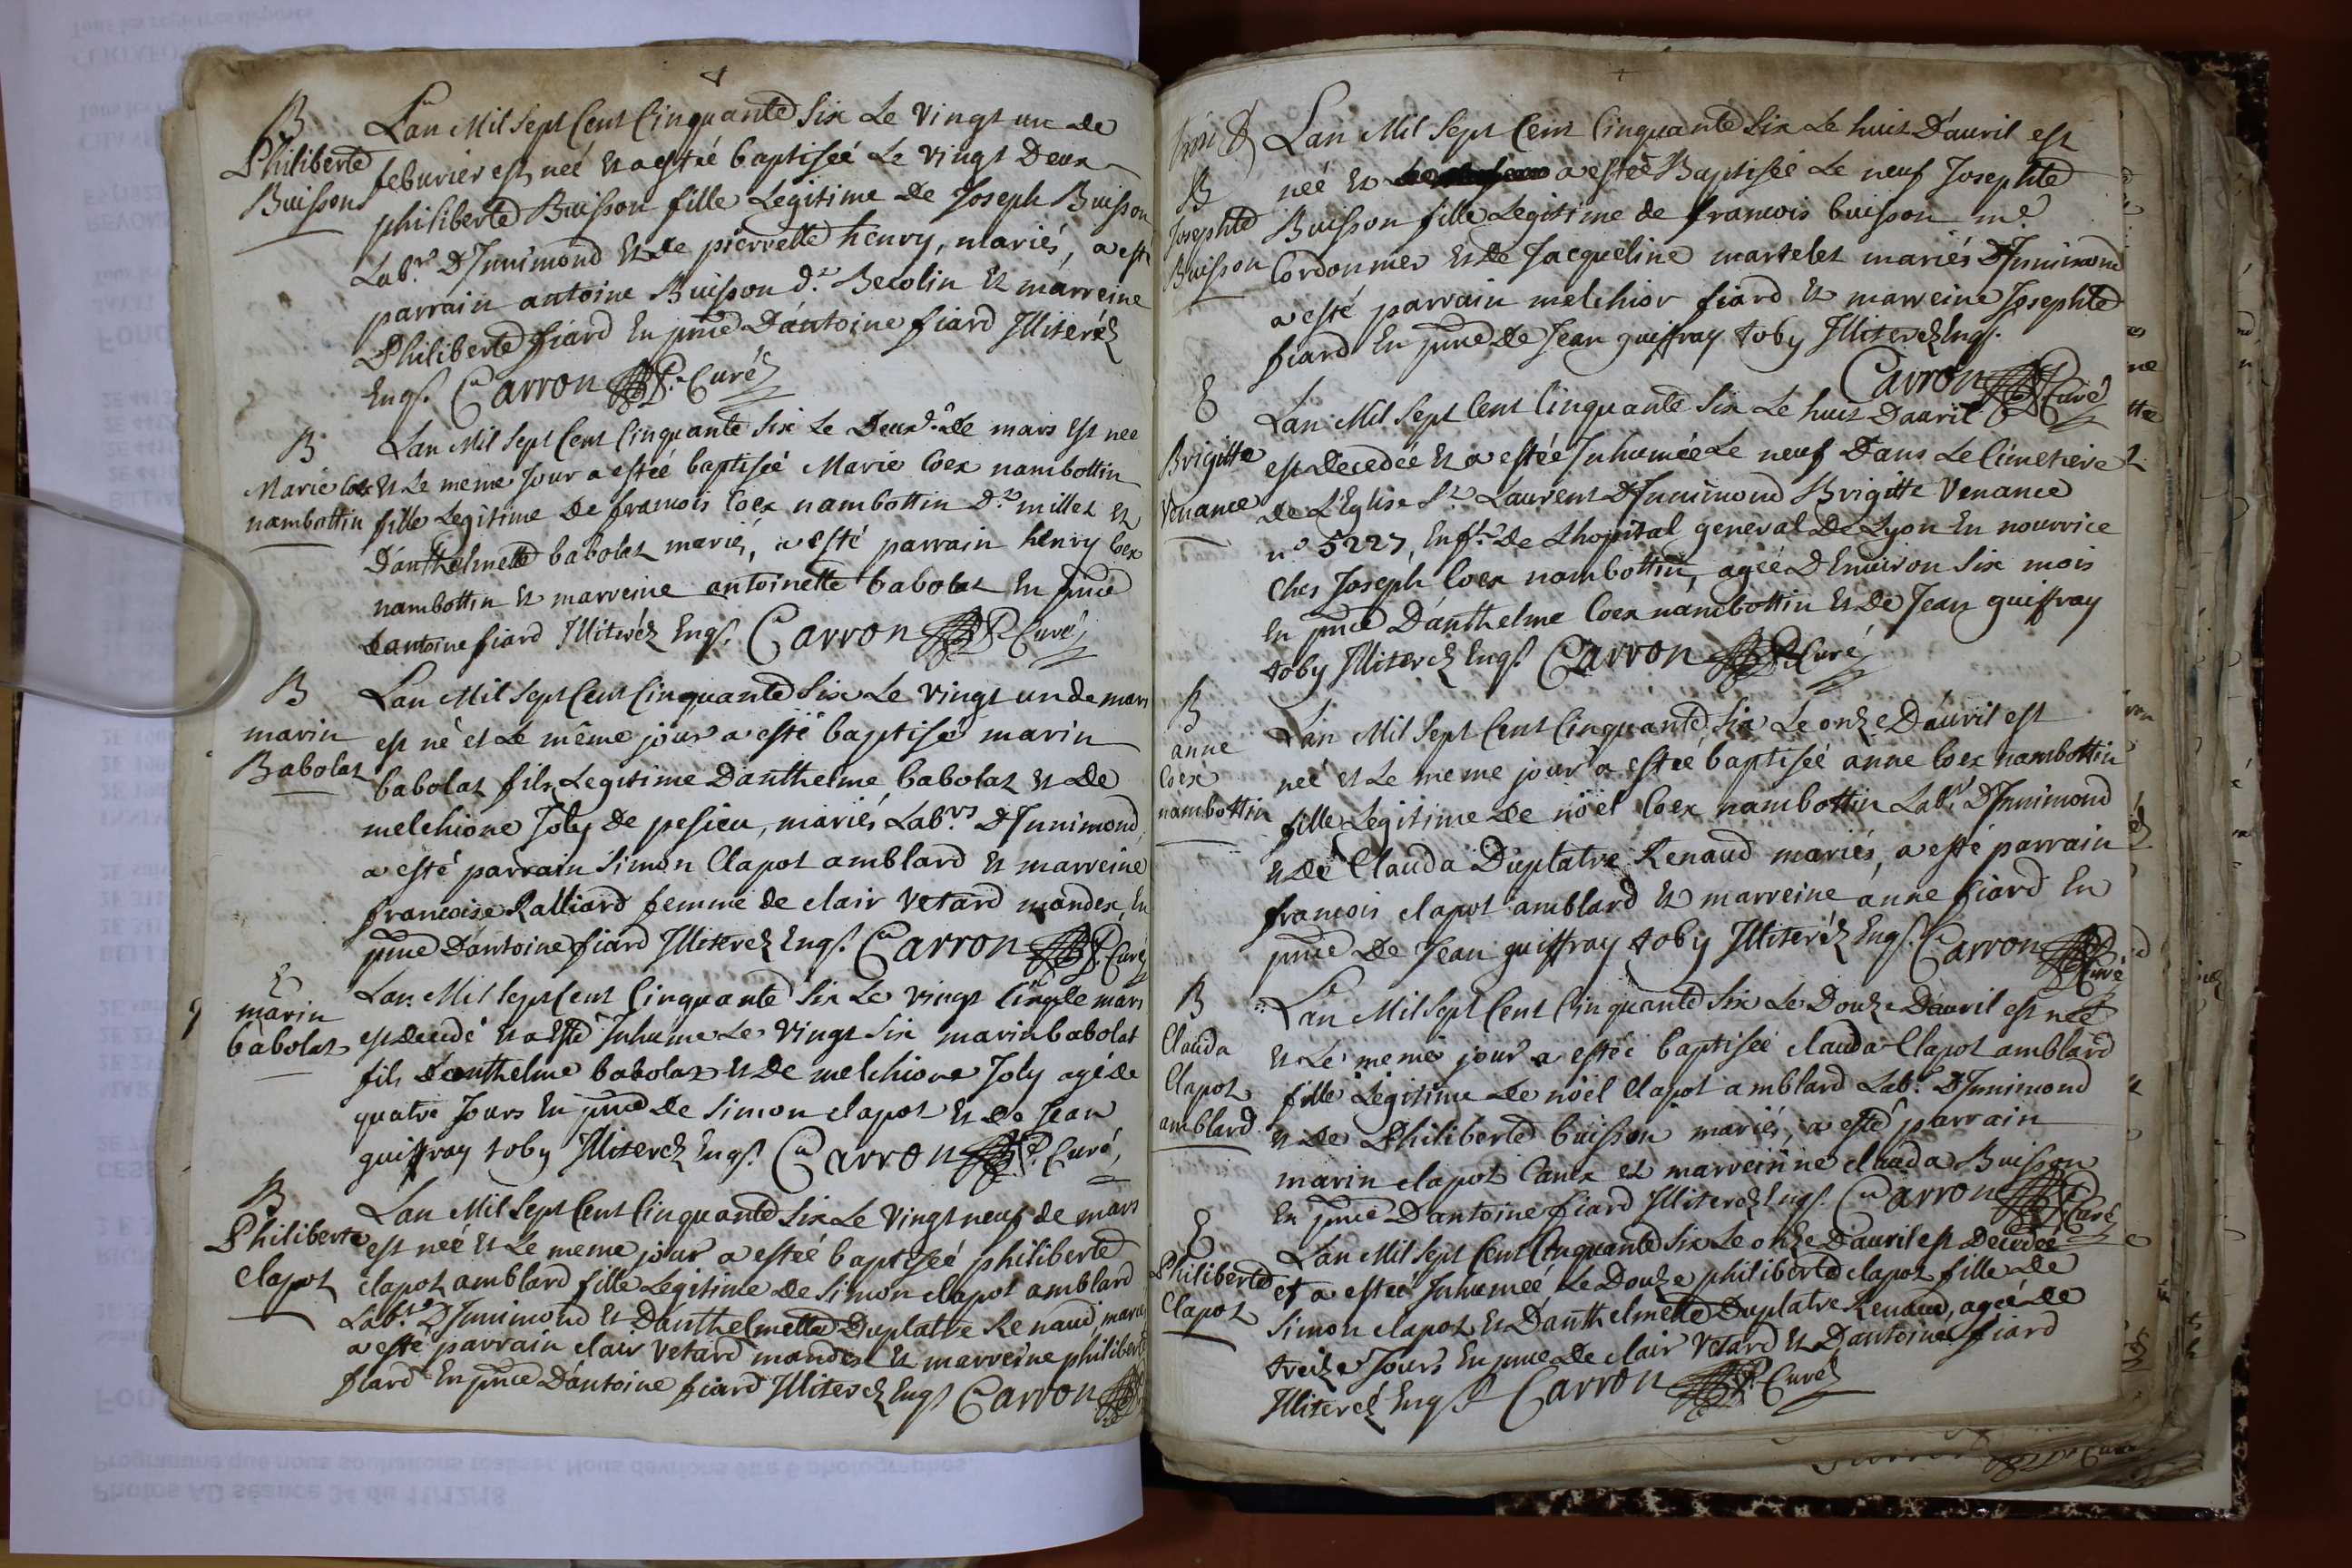 B
Philiberte
Buisson
Lan Mil Sept Cent Cinquante Six Le Vingt un de
feburier est neé et a estée baptiseé Le vingt Deux
philiberte Buisson fille Legitime De Joseph Buisson
Lab.r D'Innimond et de pierrette henry, mariés, a esté
parrain antoine Buisson d.t Becolin et marreine
Philiberte fiard En pnce D'antoine fiard Illiteréz
Engs. Carron Curé
B
Marie Coex
nambottin
Lan Mil Sept Cent Cinquante Six Le Deux de mars est neé
et Le meme Jour a estée baptiseé Marie Coex nambottin
fille Legitime De francois Coex nambottin D.t millet et
D'anthelmette babolat mariés, a esté parrain henry Coex
nambottin et marreine antoinette babolat En pnce
D'antoine fiard Illiteréz Engs. Carron Curé
B
marin
Babolat
Lan Mil Sept Cent Cinquante Six Le vingt un de mars
est né et Le même jour a esté baptisé marin
babolat fils Legitime D'anthelme babolat et de
melchione Joly De pesieu, mariés Lab.rs D'Innimond
a esté parrain Simon Clapot amblard et marreine
francoise Ralliard femme de clair Vetard mandex, En
pnce D'antoine fiard Illiterez Engs. Carron Curé
E
marin
babolat
Lan Mil Sept Cent Cinquante Six Le vingt Cinq de mars
est decedé et a Esté Inhumé Le vingt Six marin babolat
fils d'anthelme babolat et de melchione Joly agé de
quatre Jours En pnce de Simon clapot et de Jean
guiffray toby Illiterez Engs. Carron Curé
B
Philiberte
clapot
Lan Mil Sept Cent Cinquante Six Le Vingt neuf de mars
est neé et Le meme jour a estée baptiseé philiberte
clapot amblard fille Legitime de Simon clapot amblard
Lab.r D'Innimond et D'anthelmette Duplatre Renaud mariés
a esté parrain clair vetard mandex et marreine philiberte
fiard En pnce D'antoine fiard Illiterez Engs Carron
B
Josephte
Buisson
Lan Mil Sept Cent Cinquante Six Le huit D'auril est
neé et a estée Baptiseé Le neuf Josephte
Buisson fille Legitime de francois buisson m.e
Cordonnier et de Jacqueline martelet mariés D'Innimond
a esté parrain melchior fiard et marreine Josephte
fiard En pnce De Jean guiffray toby Illiterez Engs.
Carron Curé
E
Brigitte
Venance
Lan Mil Sept Cent Cinquante Six Le huit D'auril
est decedeé et a estée Inhumeé Le neuf Dans Le Cimetiere
de L'Eglise S.t Laurent D'Innimond Brigitte Venance
n.o 5227, Enf.t De Lhopital general De Lyon En nourrice
Ches Joseph Coex nambottin, ageé D'Enuiron Six mois
En pnce D'anthelme Coex nambottin et De Jean guiffray
toby Illiterez Engs Carron Curé
B
anne
Coex
nambottin
Lan Mil Sept Cent Cinquante Six Le onze D'auril est
neé et Le meme jour a estée baptiseé anne Coex nambottin
fille Legitime de noël Coex nambottin Lab.r D'Innimond
et de Clauda Duplatre Renaud mariés, a esté parrain
francois clapot amblard et marreine anne fiard En
pnce De Jean guiffray toby Illiteréz Engs. Carron
Curé
B
Clauda
Clapot
amblard
Lan Mil Sept Cent Cinquante Six Le Douze D'auril est neé
et Le meme jour a estée baptiseé clauda Clapot amblard
fille Legitime de noël Clapot amblard Lab.r D'Innimond
et De Philiberte buisson mariés, a esté parrain
marin clapot Canex et marreine clauda Buisson
En pnce D'antoine fiard Illiterez Engs. Carron
Curé
E
Philiberte
Clapot
Lan Mil Sept Cent Cinquante Six Le onze D'auril est Decedeé
et a estée Inhumeé Le Douze philiberte clapot fille de
Simon clapot et D'anthelmette Duplatre Renaud, ageé de
treize Jours En pnce De clair Vetard et D'antoine fiard
Illiterez Engs. Carron Curé